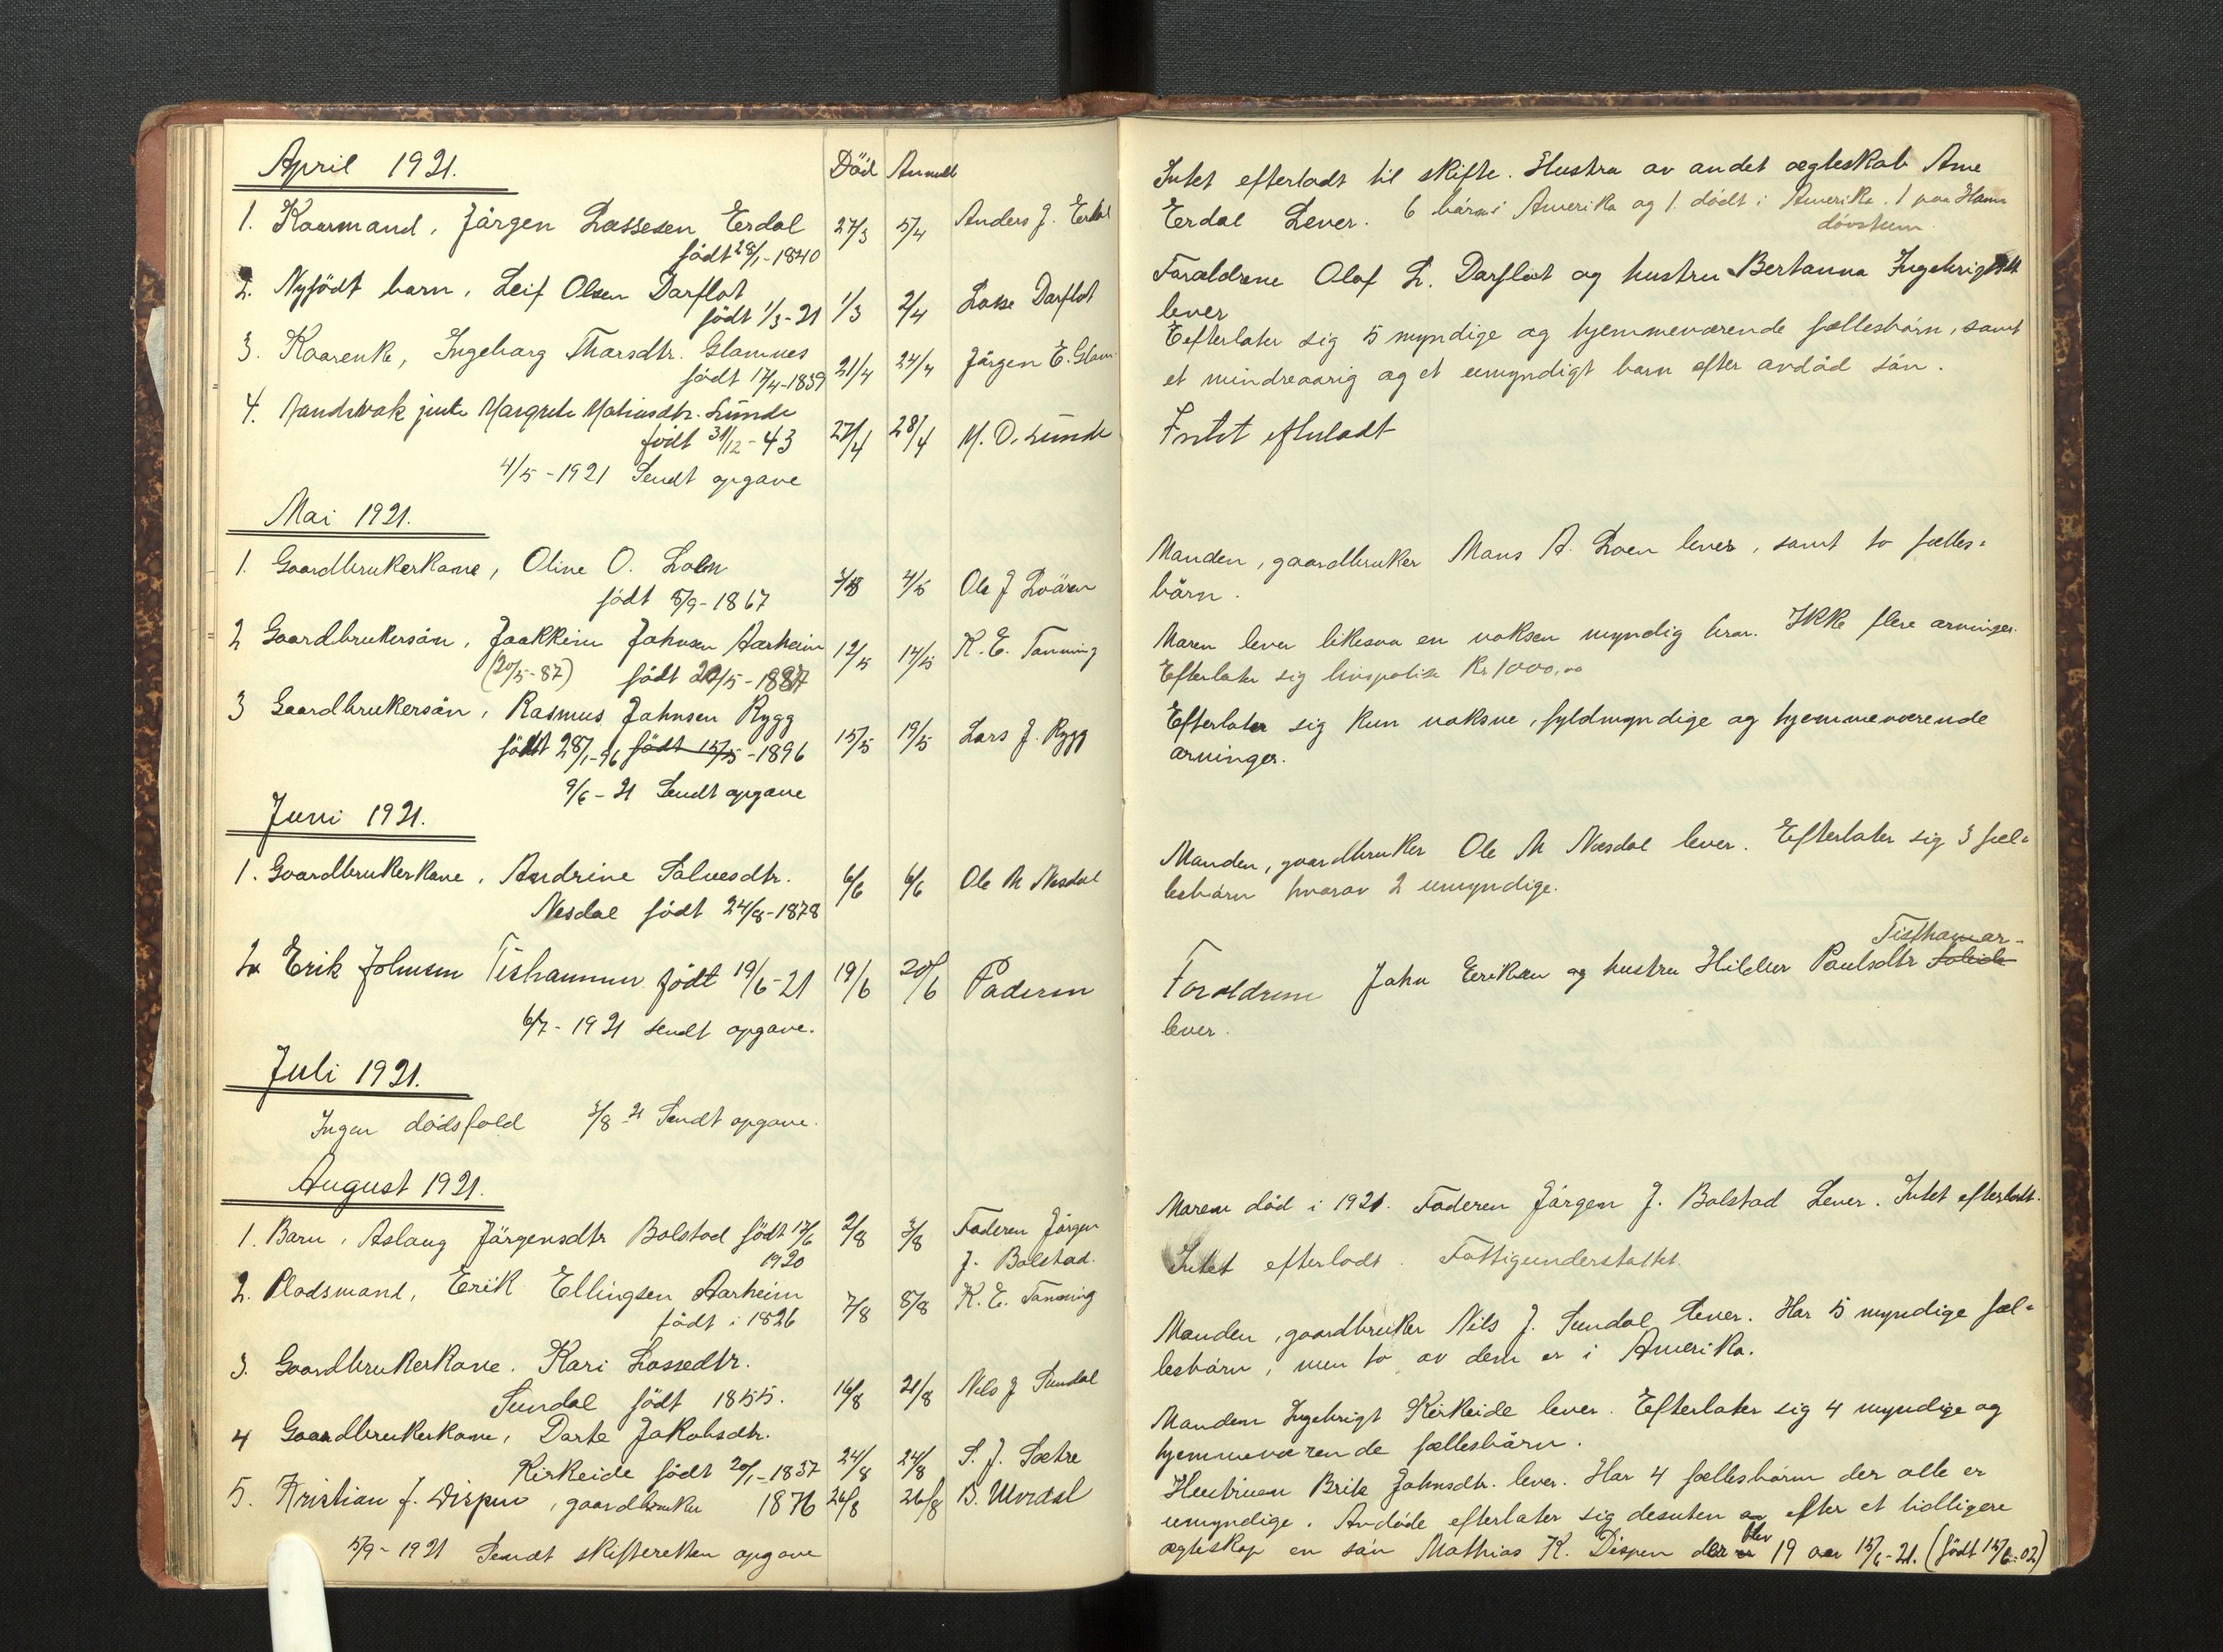 April 1921.
Död Anmeldt
1. Kaarmand, Jörgen Lassesen Erdal 27/3 5/4 Anders J. Erdal
födt 28/1-1840
2. Nyfödt barn, Leif Olsen Darflot
födt 1/3-21 1/3 2/4 Lasse Darflot
3. Kaarenke, Ingeborg Thorsdtr. Glomnes
födt 17/4-1839 21/4 24/4 Jörgen E. Glom.
4. jente Margrete Mathiasdtr. Sunde
födt 31/12-43 27/4 28/4 M. O. Sunde
4/5-1921 Sendt opgave
Mai 1921.
1. Gaardbrukerkone, Oline O. Loen
födt 5/9-1867 4/5 Ole J Loären
2 Gaardbrukersön, Joakkim Johnsen Aarheim 12/5 14/5 K. E. Tanning
(20/5-87) födt 20/5-1887
3 Gaardbrukersön, Rasmus Johnsen Rygg
födt 28/1-96 födt 15/5-1896 15/5 19/5 Lars J. Rygg
9/6-21 Sendt opgave
Juni 1921.
1. Gaardbrukerkone, Andrine Salvesdtr. 6/6 6/6 Ole M Nesdal
Nesdal födt 24/8-1878
2. Erik Johnsen Tishammer födt 19/6-21 19/6 20/6 Faderen
6/7-1921 sendt opgave.
Juli 1921.
Ingen dödsfald 3/8 21 Sendt opgave.
August 1921.
1. Barn, Aslaug Jörgensdtr Bolstad födt 17/6 2/8 3/8 Faderen Jörgen
1920 J. Bolstad.
2. Pladsmand, Erik Ellingsen Aarheim
födt i 1826 7/8 8/8 K. E. Tanning
3. Gaardbrukerkone. Kari Lassedtr.
Sundal födt 1855. 16/8 21/8 Nils J Sundal
4 Gaardbrukerkone, Dorte Jakobsdtr.
Kirkeide födt 20/1-1857 24/8 24/8 S. J. Sætre
5. Kristian J. Dispen, gaardbruker 1876 26/8 26/8 B. Utvidal
5/9-1921 Sendt skifteretten opgave
Intet efterladt til skifte. Hustru av andet ægteskab Ane
Erdal Lever. 6 börn i Amerika og 1 dödt i Amerika. 1 paa Hamn
dövstum.
Forældrene Olaf L. Darflot og hustru Bertanna Ingebrigtsdtr
lever
Efterlater sig 5 myndige og hjemmeværende fællesbörn, samt
et mindreaarig og et umyndigt barn efter avdöd sön.
Intet efterladt
Manden, gaardbruker Mons A. Loen lever, samt to fælles=
börn.
Moren lever likesaa en voksen myndig bror. Ikke flere arvinger.
Efterlater sig livspolise Kr 1000,00
Efterlater sig kun voksne, fyldmyndige og hjemmeværende
arvinger.
Manden, gaardbruker Ole M Nesdal lever. Efterlater sig 3 fæl=
lesbörn hvorav 2 umyndige.
Tisthamar-
Forældrene John Eriksen og hustru Hilder Paulsdtr
lever.
Moren död i 1921. Faderen Jörgen J. Bolstad Lever. Intet efterladt.
Intet efterladt. Fattigunderstöttet.
Manden, gaardbruker Nils J. Sundal lever. Har 5 myndige fæl=
lesbörn, men to av dem er i Amerika.
Manden Ingebrigt Kirkeide lever. Efterlater sig 4 myndige og
hjemmeværende fællesbörn.
Hustruen Brite Johnsdtr. lever. Har 4 fællesbörn der alle er
umyndige. Avdöde efterlater sig desuten efter et tidligere
ægteskap en sön Mathias K. Dispen der blev 19 aar 15/6-21. (födt 15/6-02)